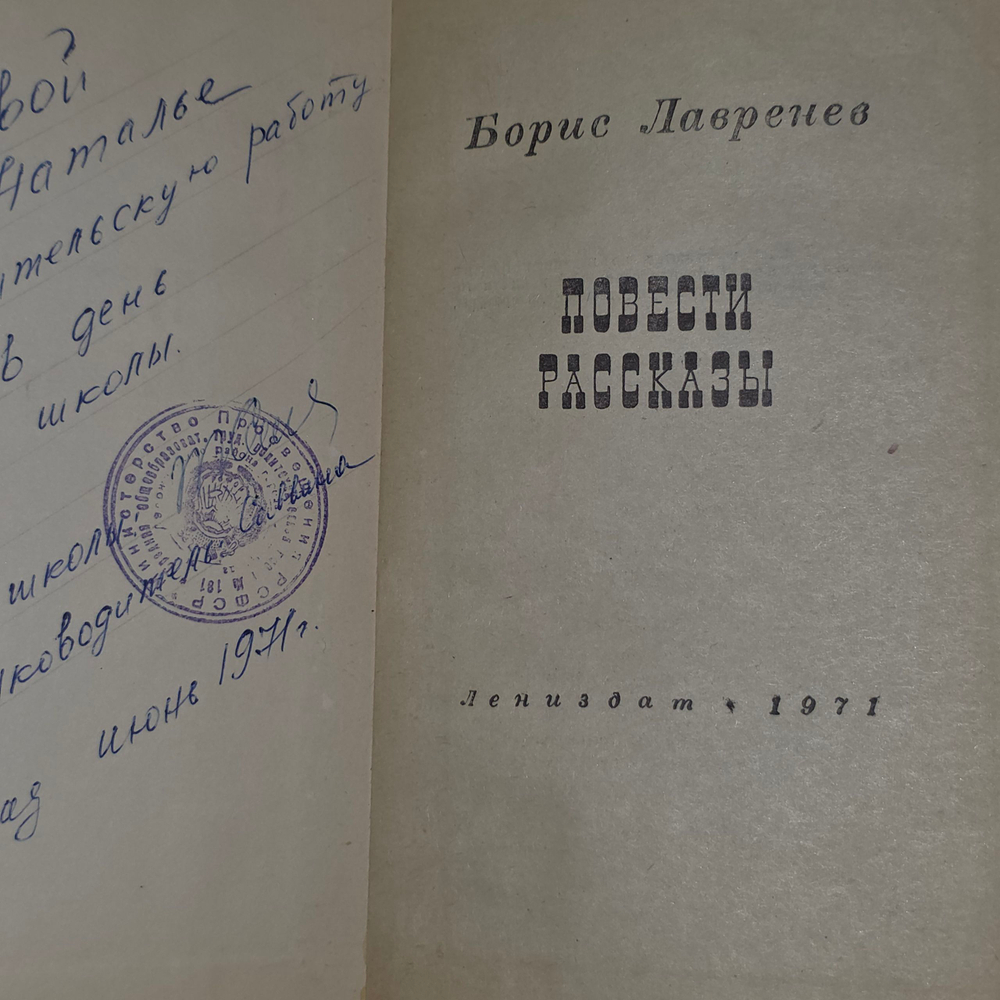 вой
Наталье
ительскую работу
в день
школы.
школы
ководитель
июнь 1971 г.
ад
МИНИСТЕРСТВО ПРОСВЕЩЕНИЯ РСФСР
Борис Лавренев
ПОВЕСТИ
РАССКАЗЫ
Лениздат • 1971